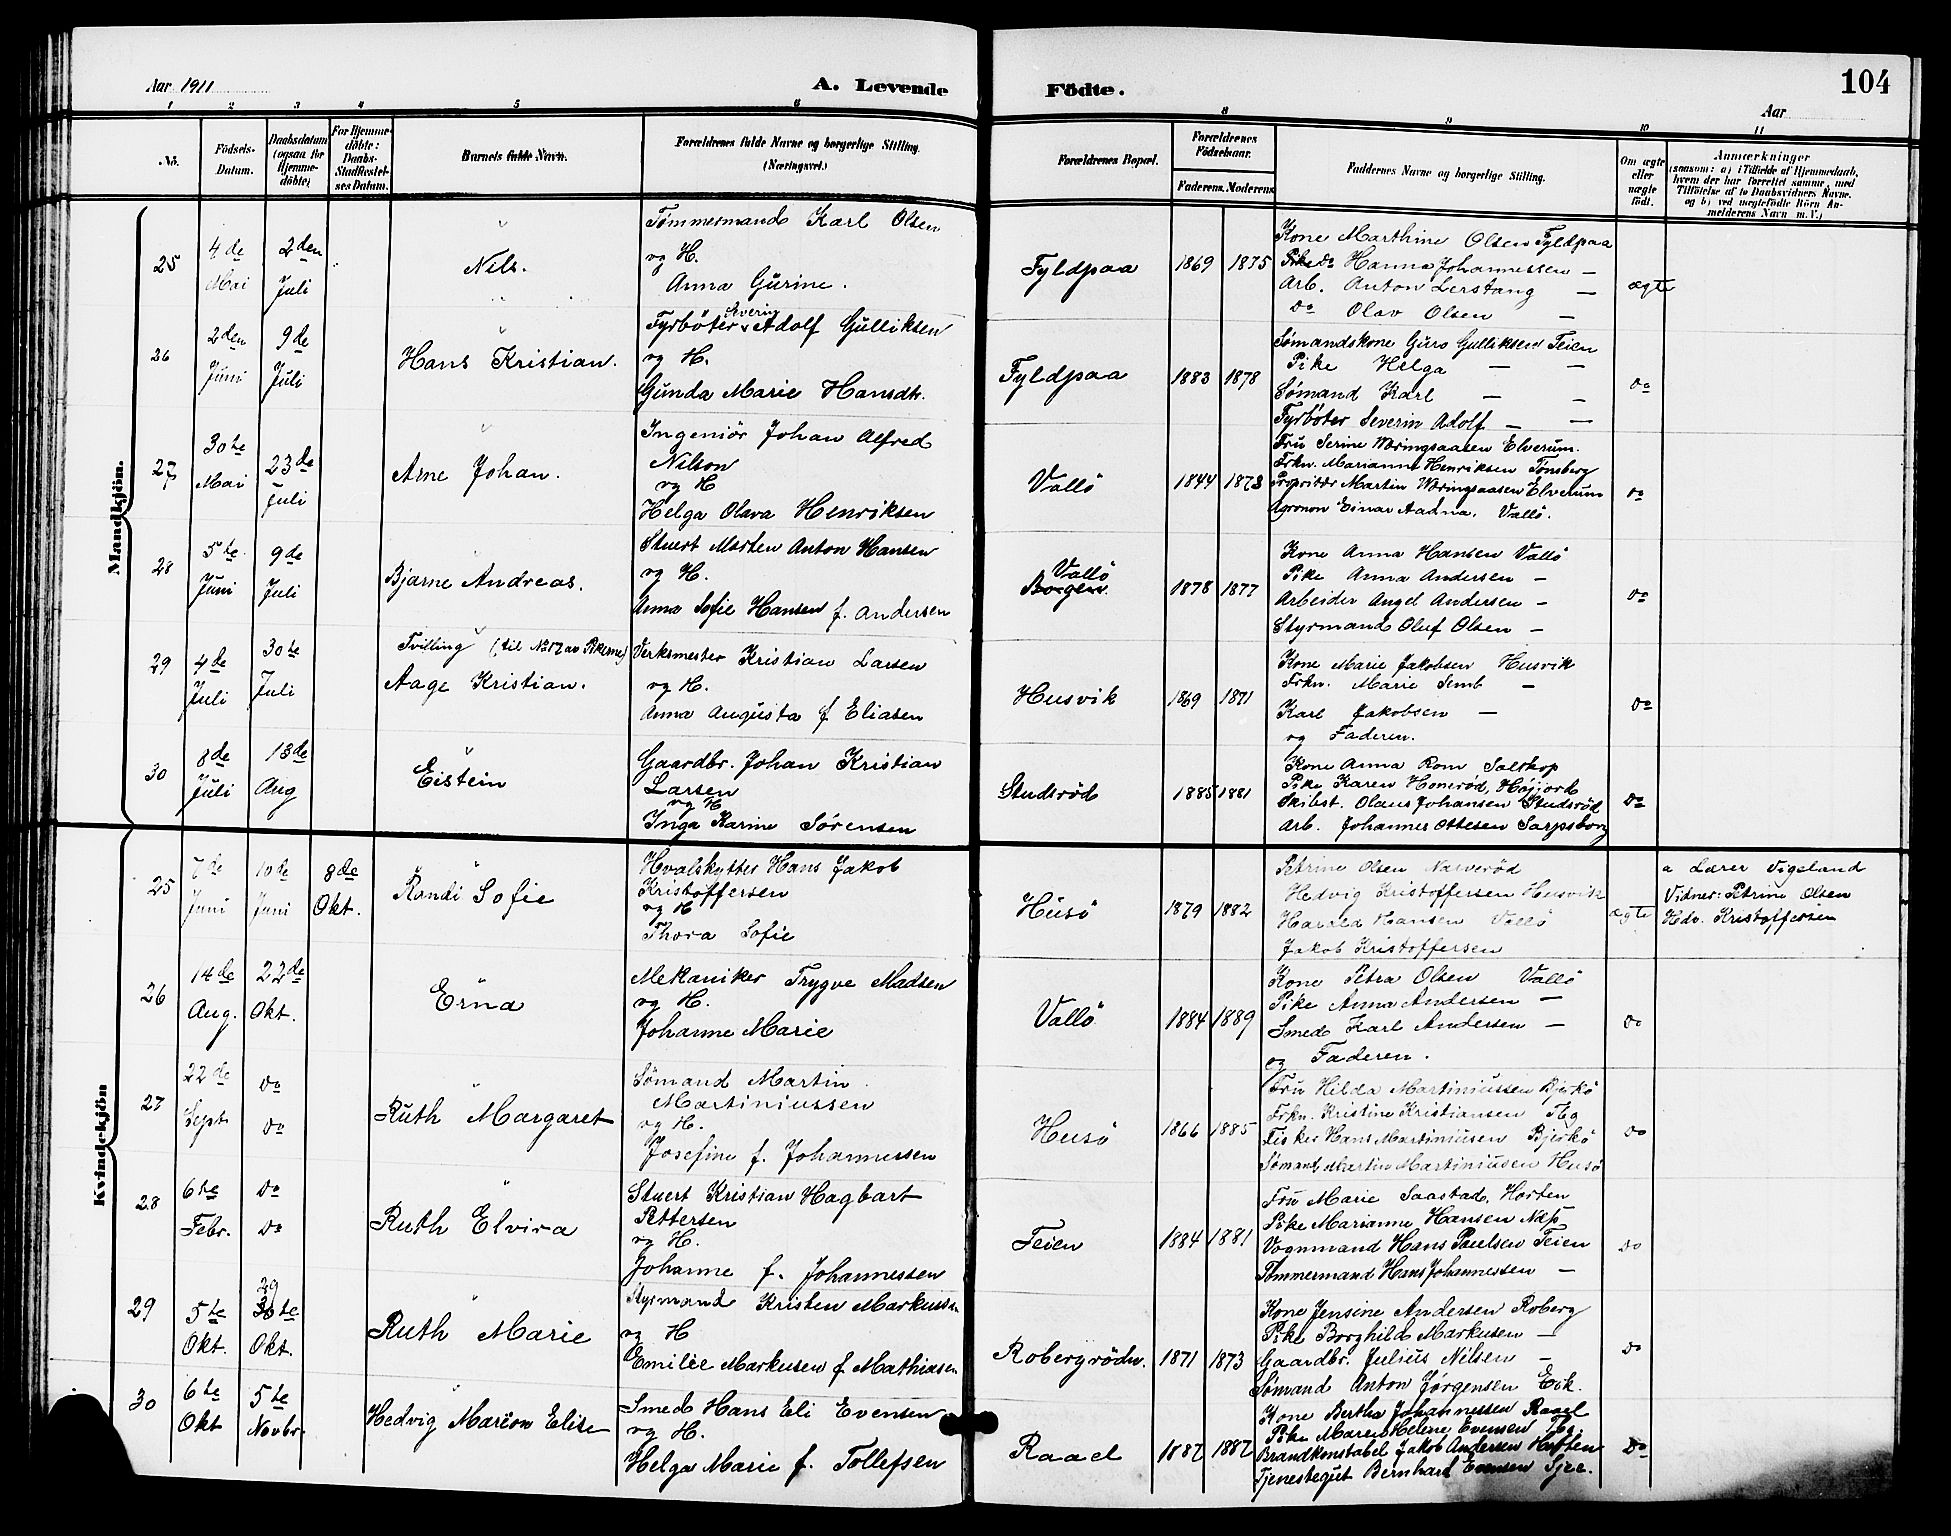 Aar 1911
A. Levende Födte.
104
Aar
1 2 3 4 5 6 8 9 10 11
No.
Födsels-Datum.
Daabsdatum (ogsaa for Hjemmedöbte)
For Hjemmedöbte: Daabs-Stadfæstelses Datum.
Barnets fulde Navn.
Forældrenes fulde Navne og borgerlige Stilling. (Næringsvei.)
Forældrenes Bopæl.
Forældrenes Födselsaar.
Faderens. Moderens
Faddernes Navne og borgerlige Stilling.
Om ægte eller uægte født.
Anmærkninger
(saasom: a) i Tilfælde af Hjemmedaab, hvem der har forrettet samme, med Tilföielse af to Daabsvidners Navne. og b) ved uægtefödte Börn Anmelderens Navn m. V.)
Mandkjön.
25 4de Mai 2den Juli
Nils.
Tømmermand Karl Olsen
og H.
Anna Gurine.
Fyldpaa 1869 1875
Kone Marthine Olsen Fyldpaa
Pike do Hanna Johannessen —
Arb. Anton Lerstang —
do Olav Olsen —
ægte
26 2den Juni 9de Juli
Hans Kristian.
Fyrbøter Severin Adolf Gulliksen
og H.
Gunda Marie Hansdtr.
Fyldpaa 1883 1878
Sømandskone Guro Gulliksen Teien
Pike Helga — —
Sømand Karl — —
Fyrbøter Severin Adolf — —
do
27 30te Mai 23de Juli
Arne Johan.
Ingeniör Johan Alfred
Nilson
og H
Helga Olava Henriksen
Vallö 1844 1873
Fru Serine Wæringsaasen Elverum.
Frkn. Marianne Henriksen Tønsberg
Propritær Martin Wæringsaasen Elverum
Agronon Einar Aanna. Vallö.
do
28 5te Juni 9de Juli
Bjarne Andreas.
Stuert Morten Anton Hansen
og H.
Anna Sofie Hansen f. Andersen
Vallö
Borgen 1878 1877
Kone Anna Hansen Vallö
Pike Anna Andersen —
Arbeider Angel Andersen —
Styrmand Oluf Olsen —
do
29 4de Juli 30te Juli
Tvilling (til No 17 av Pikerne)
Aage Kristian.
Verksmester Kristian Larsen
og H.
Anna Augusta f Eliasen
Husvik 1869 1871
Kone Marie Jakobsen Husvik
Frkn. Marie Semb —
Karl Jakobsen —
og Faderen.
do
30 8de Juli 13de Aug
Eistein
Gaardbr. Johan Kristian
Larsen
og H
Inga Karine Sørensen
Studsrød 1885 1881
Kone Anna Rom Saltkop
Pike Karen Honerød, Høijord
Skibst. Olaus Johansen Studsrød
Arb. Johannes Ottesen Sarpsborg
do
Kvindekjön
25 7de Juni 10de Juni 8de Okt.
Randi Sofie
Hvalskytter Hans Jakob
Kristoffersen
og H
Thora Sofie
Husö 1879 1882
Petrine Olsen Narverød
Hedvig Kristoffersen Husvik
Harald Hansen Vallö
Jakob Kristoffersen
ægte
a Lærer Vigeland
Vidner: Petrine Olsen
Hedv. Kristoffersen
26 14de Aug. 22de Okt.
Erna
Mekaniker Trygve Madsen
og H.
Johanne Marie
Vallö 1884 1889
Kone Petra Olsen Vallö
Pike Anna Andersen —
Smed Karl Andersen —
og Faderen.
do
27 22de Sept do do
Ruth Margaret
Sømand Martin
Martiniussen
og H.
Josefine f. Johannessen
Husö 1866 1885
Fru Hilda Martiniussen Bjerkö
Frkn. Kristine Kristiansen Tbg
Fisker Hans Martiniusen Bjerkö
Sømand Martin Martiniusen Husö
do
28 6te Febr. do do
Ruth Elvira
Stuert Kristian Hagbart
Pettersen
og H.
Johanne f. Johannessen
Teien 1884 1881
Fru Marie Saastad, Horten
Pike Marianne Hansen Næs
Vognmand Hans Paulsen Teien
Tømmermand Hans Johannessen —
do
29 5te Okt. 29 30te Okt.
Ruth Marie
Styrmand Kristen Markussen
og H
Emilie Markusen f Mathiasen
Robergrödn. 1871 1873
Kone Jensine Andersen Roberg
Pike Borghild Markusen —
Gaardbr. Julius Nilsen —
Sømand Anton Jørgensen Eik.
do
30 6te Okt 5te Novbr.
Hedvig Marion Elise
Smed Hans Eli Evensen
og H.
Helga Marie f. Tollefsen
Raael 1887 1887
Kone Bertha Johannessen Raael
Pike Maren Helene Evensen
Brandkonstabel Jakob Andersen Horten
Tjenestegut Bernhart Evensen
do